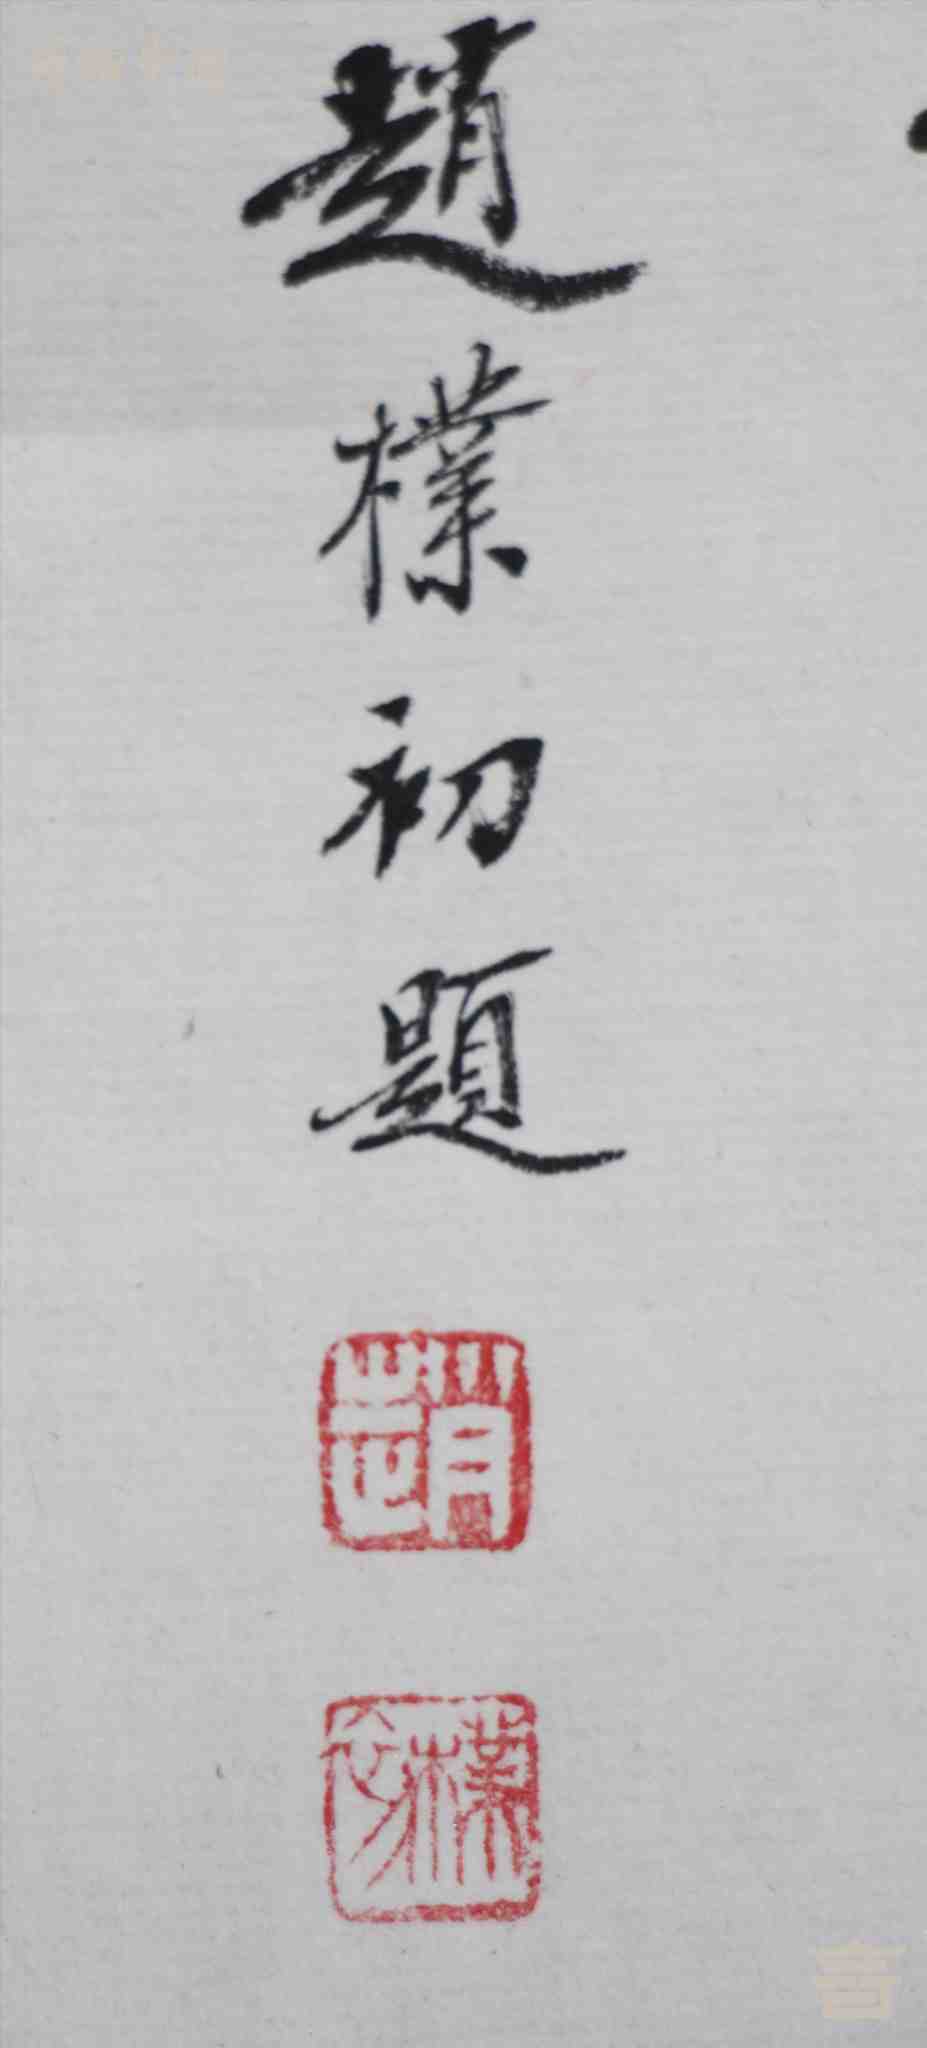 趙樸初題
趙
樸初